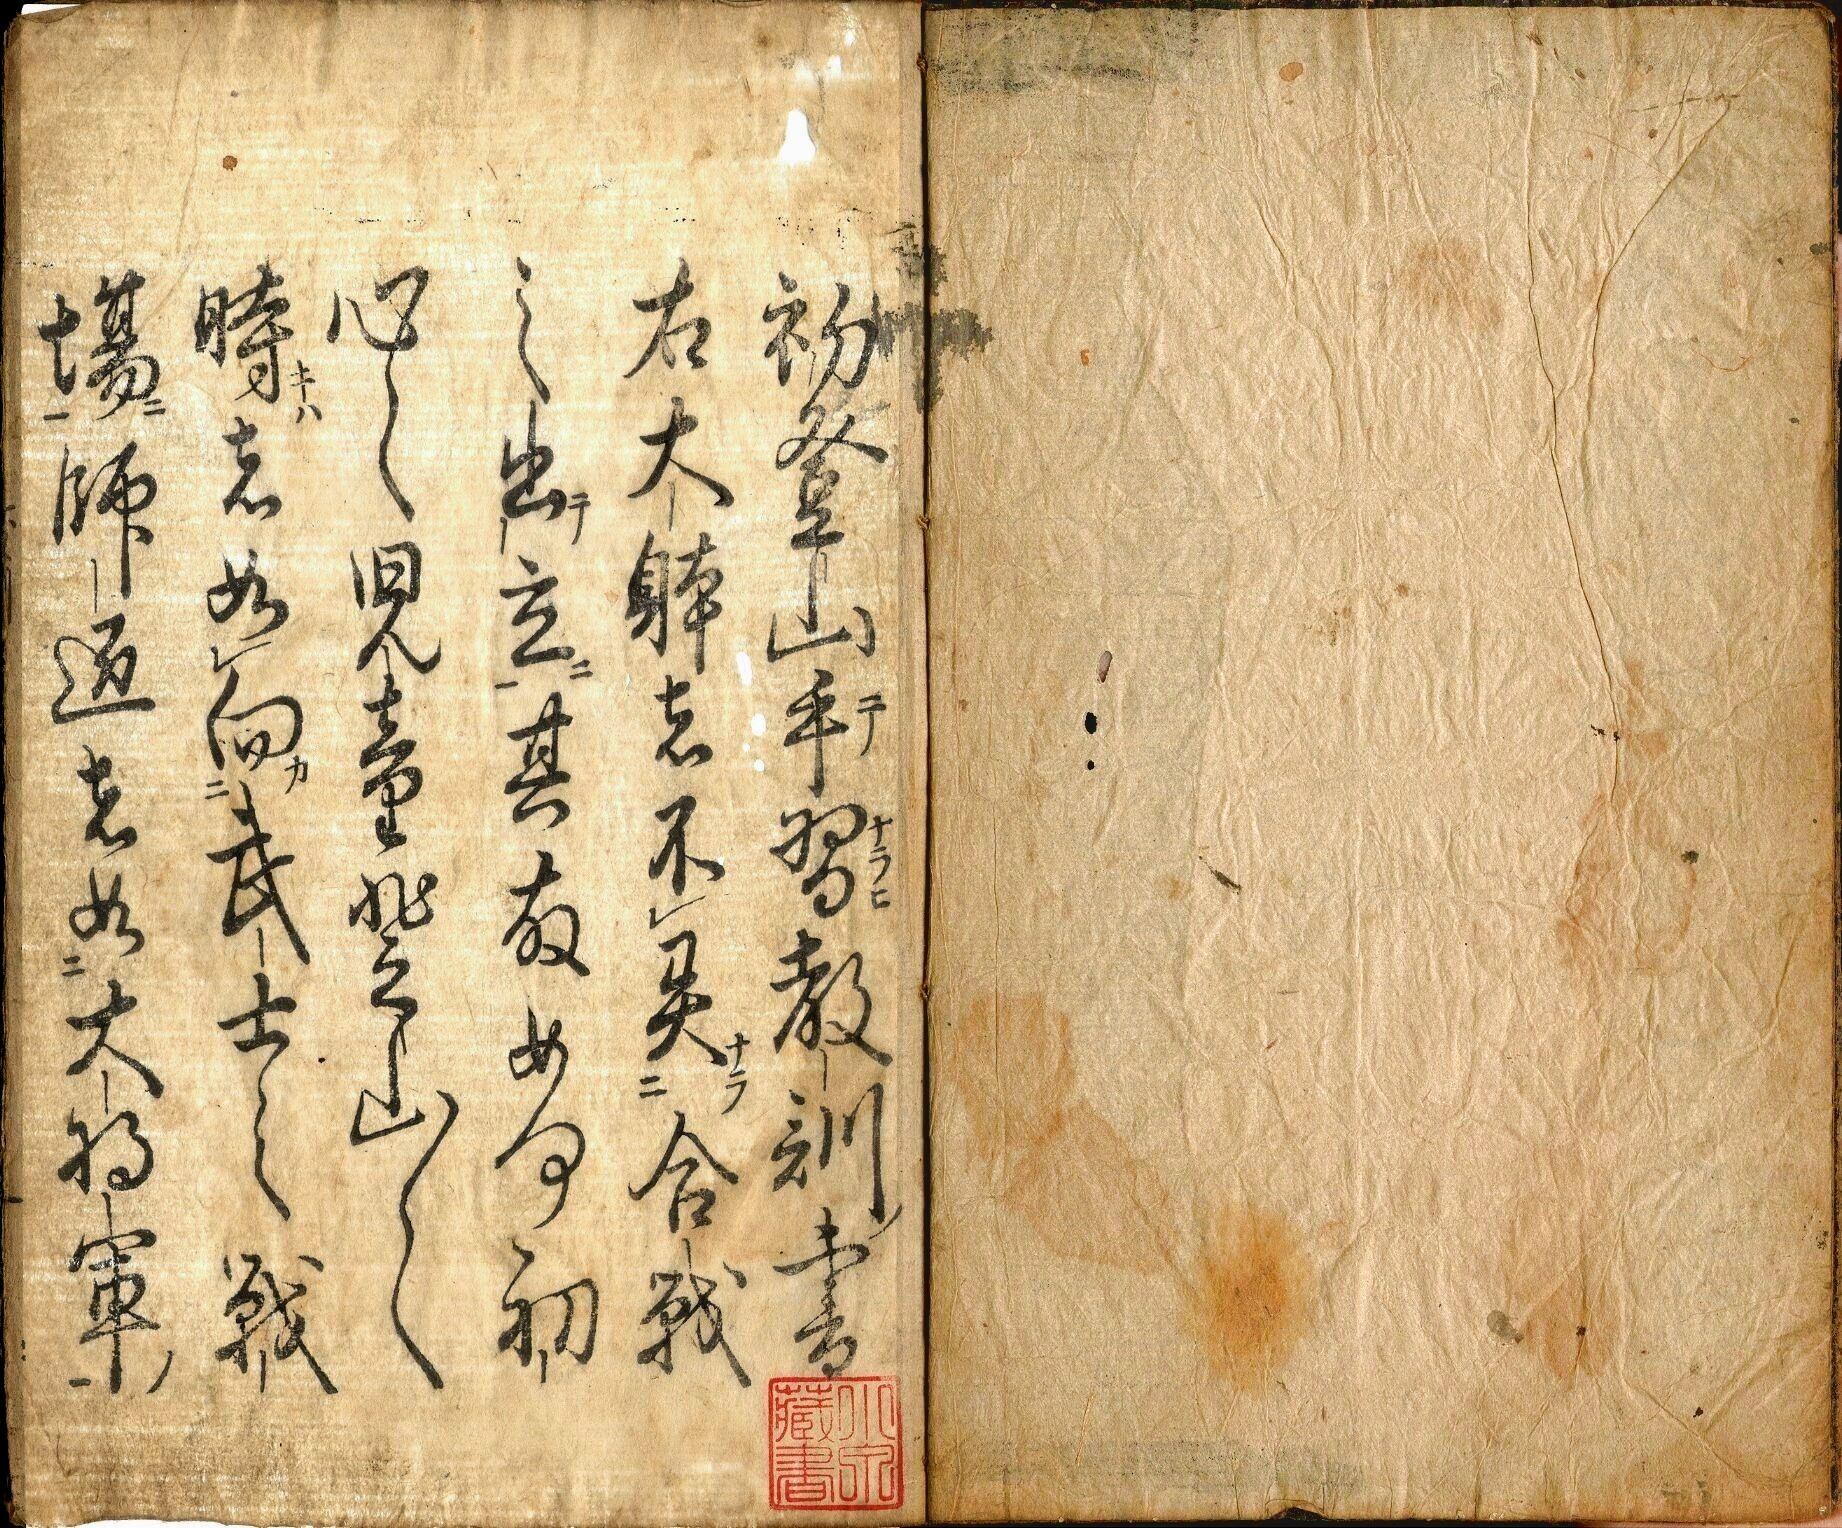 初登山手習教訓書
右大躰者不異合戦
之出立其故如何初
心之児童登山之
時者如向武士之戦
場師匠者如大将軍
小泉藏書